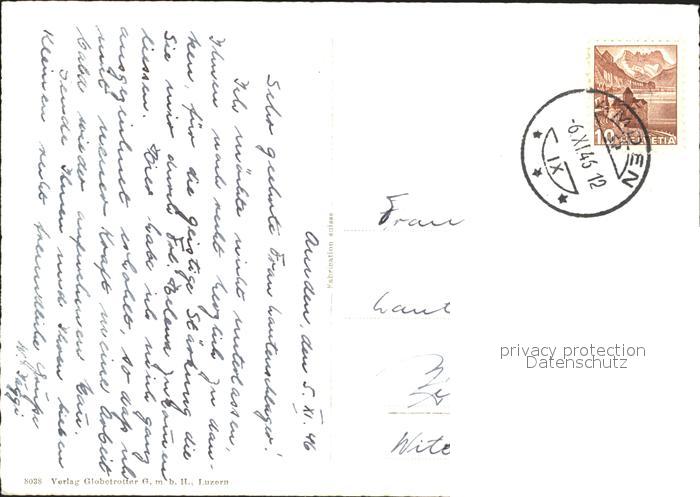 Amden, den 5. XI. 46
Sehr geehrte Frau Lautensberger!
Ich möchte nicht unterlassen,
Ihnen noch recht herzlich zu dan-
ken, für die geistige Stärkung die
Sie mir durch Frl. Helena zukommen
liessen. Hier habe ich mich ganz
ausgezeichnet erholt, so dass ich
mit neuer Kraft meine Arbeit
balde wieder aufnehmen kann.
Sende Ihnen und Ihren lieben
Kleinen recht freundliche Grüsse
Fabrication suisse
Frau
Laut
Wite
AMDEN
-6.XI.46 12
IX
10
HELVETIA
privacy protection
Datenschutz
8038 Verlag Globetrotter G. m. b. H., Luzern